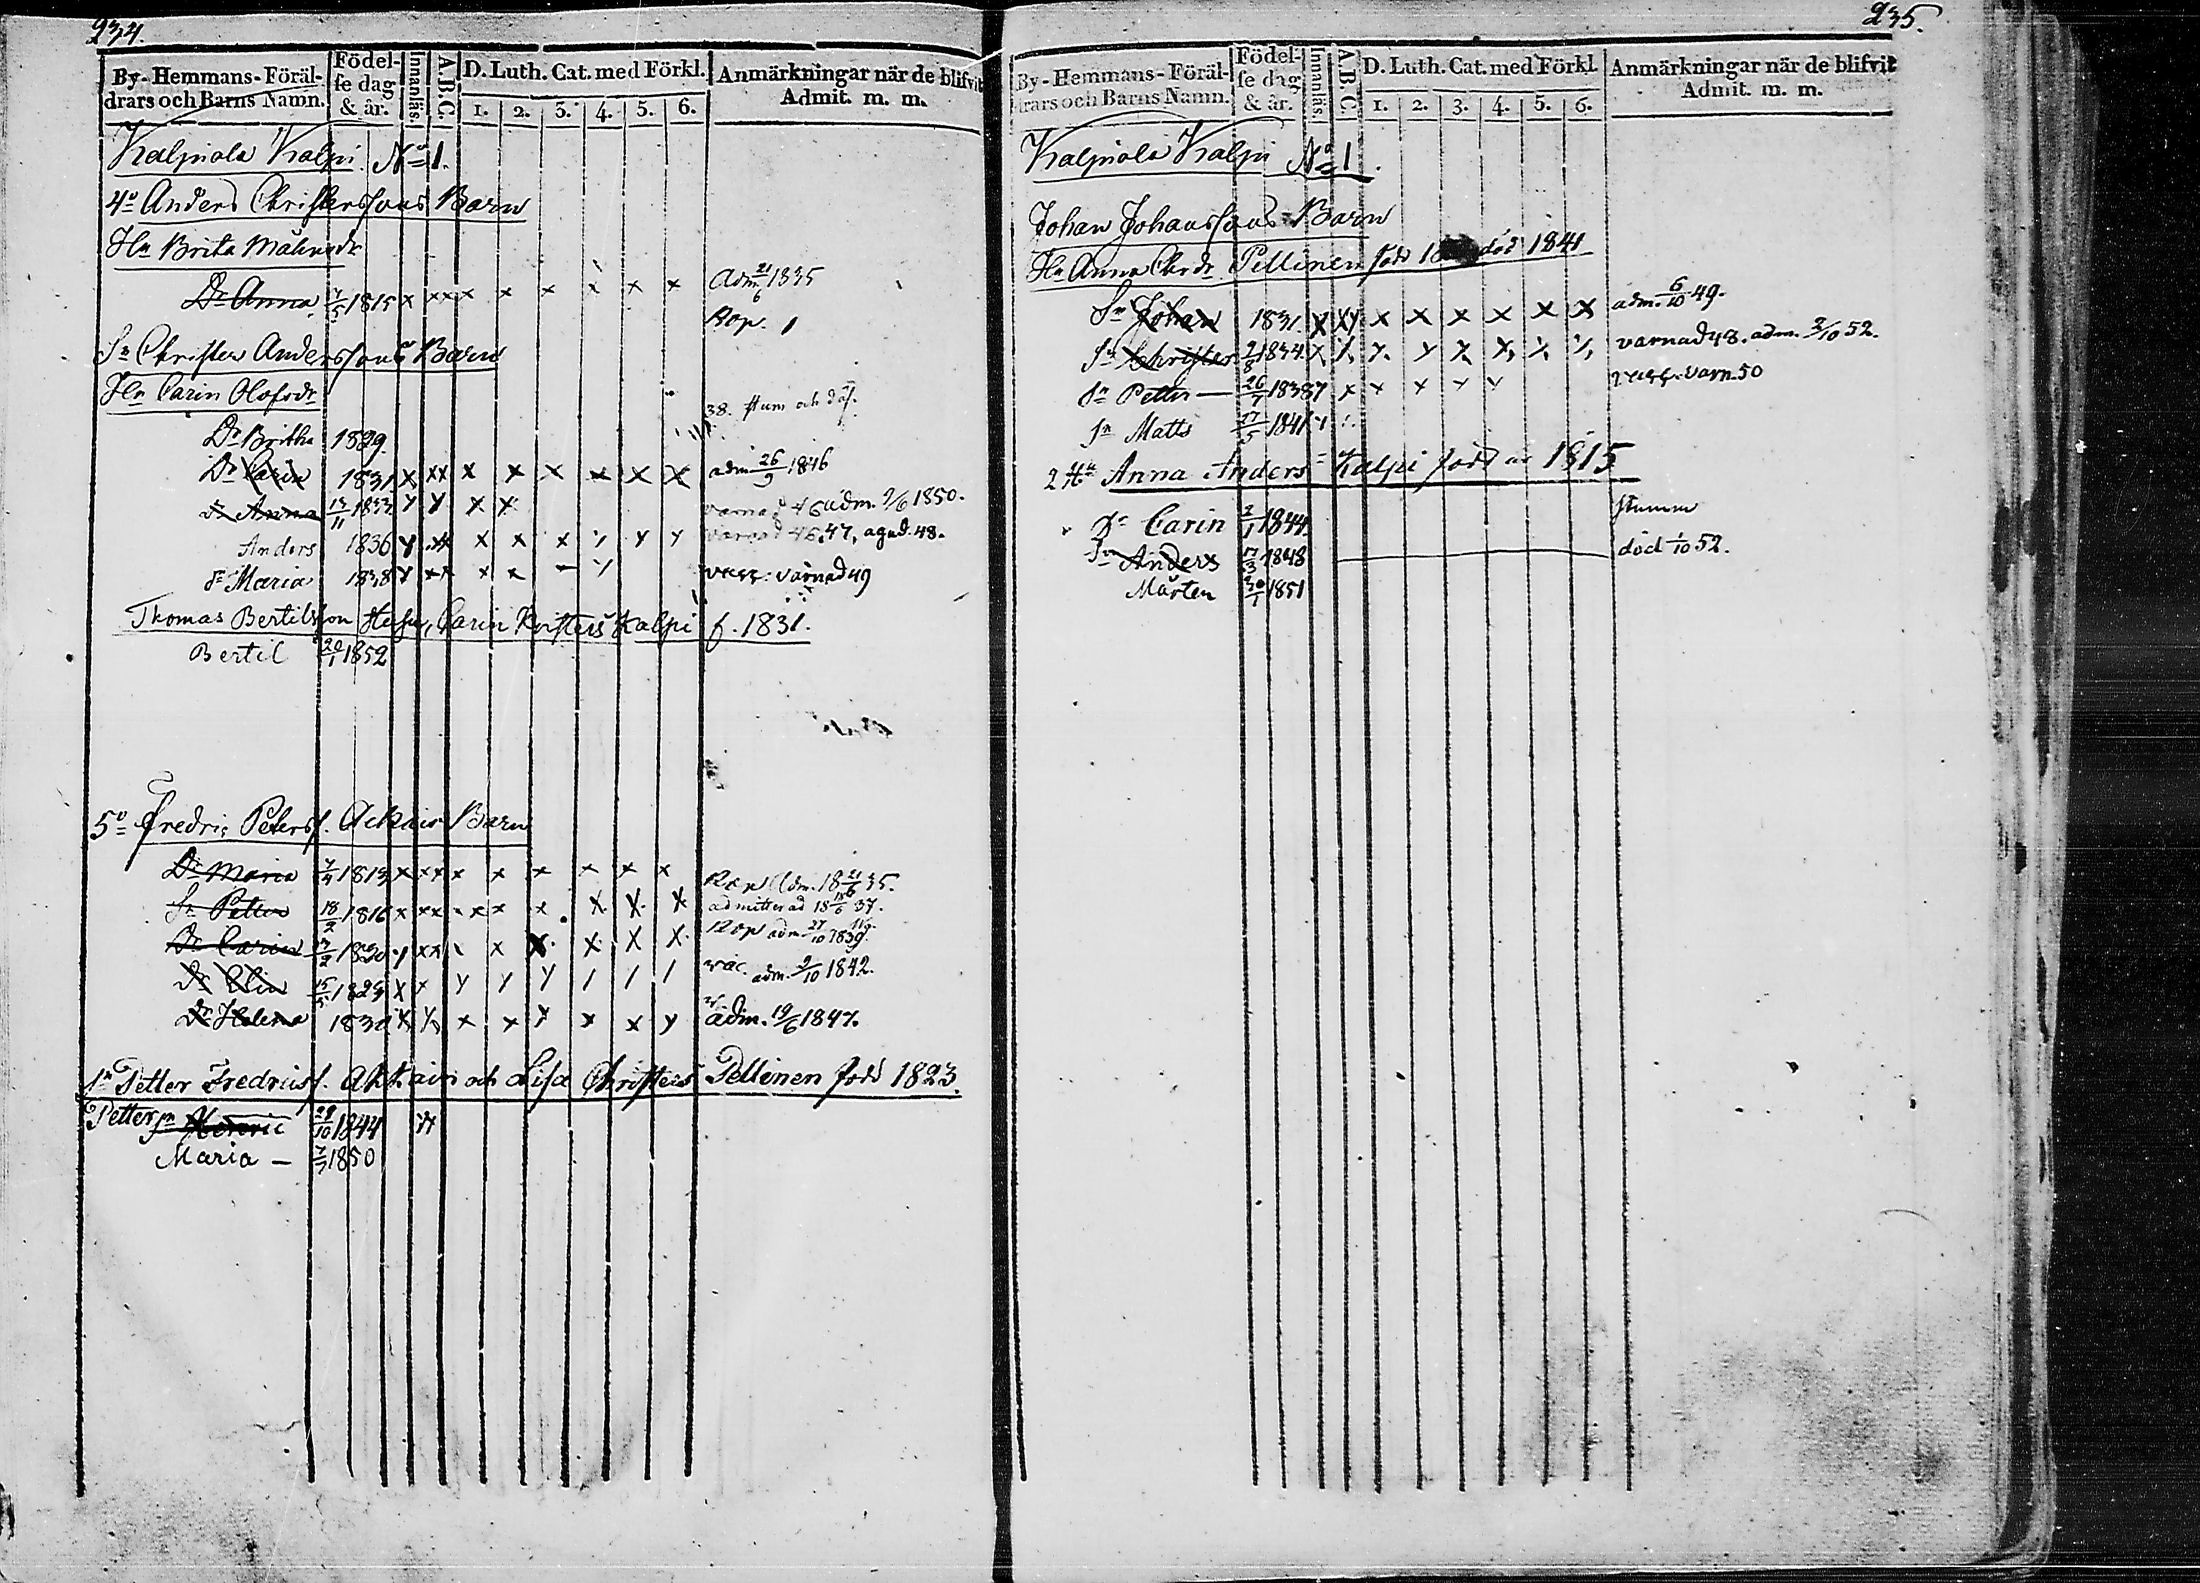 234.
By-Hemmans-Föräl-
drars och Barns Namn.
Födel-
se dag
& år.
Innanläs.
A.B.C.
D. Luth. Cat. med Förkl.
1. 2. 3. 4. 5. 6.
Anmärkningar när de blifvit
Admit. m. m.
Kalpiala Kalpi. No 1.
4o Anders Christerssons Barn
Hu Brita Månsdr
Dr Anna 1815 x xx x x x x x x Adm. 21/6 1835
Kop.
Sn Christer Anderssons Barn
Hu Carin Olofsdr
Dr Britha 1829. 38. stum och döf.
Dr Carin 1831 x xx x x x x x x adm 26/9 1846
Dr Anna 13/11 1833 varnad 46 adm. 9/6 1850.
Anders 1836 varnad 46, 47, agad. 48.
Dr Maria 1838 varnad 49
Thomas Bertilsson Carin Kristers Kalpi f. 1831.
Bertil 20/1 1852
5o Fredric Peters. Ackain Barn
Dr Maria 1813 x xx x x x x x x Kop Adm. 18 21/6 35.
Sn Petter 18/2 1816 x xx x x x x x x admitterad 18 18/6 37.
Dr Carin x x x x x x Kop adm 27/10 1839.
Dr Elin adm. 9/10 1842.
Dr Helena adm. 19/6 1847.
Sn Petter Fredricss. Akkain och Lisa Christers Pellinen född 1823.
Petter Sn 29/10 1844
Maria — 1850
235.
By-Hemmans-Föräl-
drars och Barns Namn.
Födel-
se dag
& år.
Innanläs
A.B.C.
D. Luth. Cat. med Förkl
1. 2. 3. 4. 5. 6.
Anmärkningar när de blifvit
Admit. m. m.
Kalpiala Kalpi No 1.
Johan Johanssons Barn
Hu Anna Chrdr Pellinen född död 1841
Sn Johan 1831. x xx x x x x x x adm. 6/10 49.
Sn Christer 1834. varnad 48. adm. 2/10 52.
Sn Petter — 26/7 1838 varn. 50
Sn Matts 17/5 1841
2 Hu Anna Anders Kalpi född år 1815
Dr Carin 1844. stumm
Sn Anders 17/3 1848 död 1/10 52.
Mårten 30/1 1851